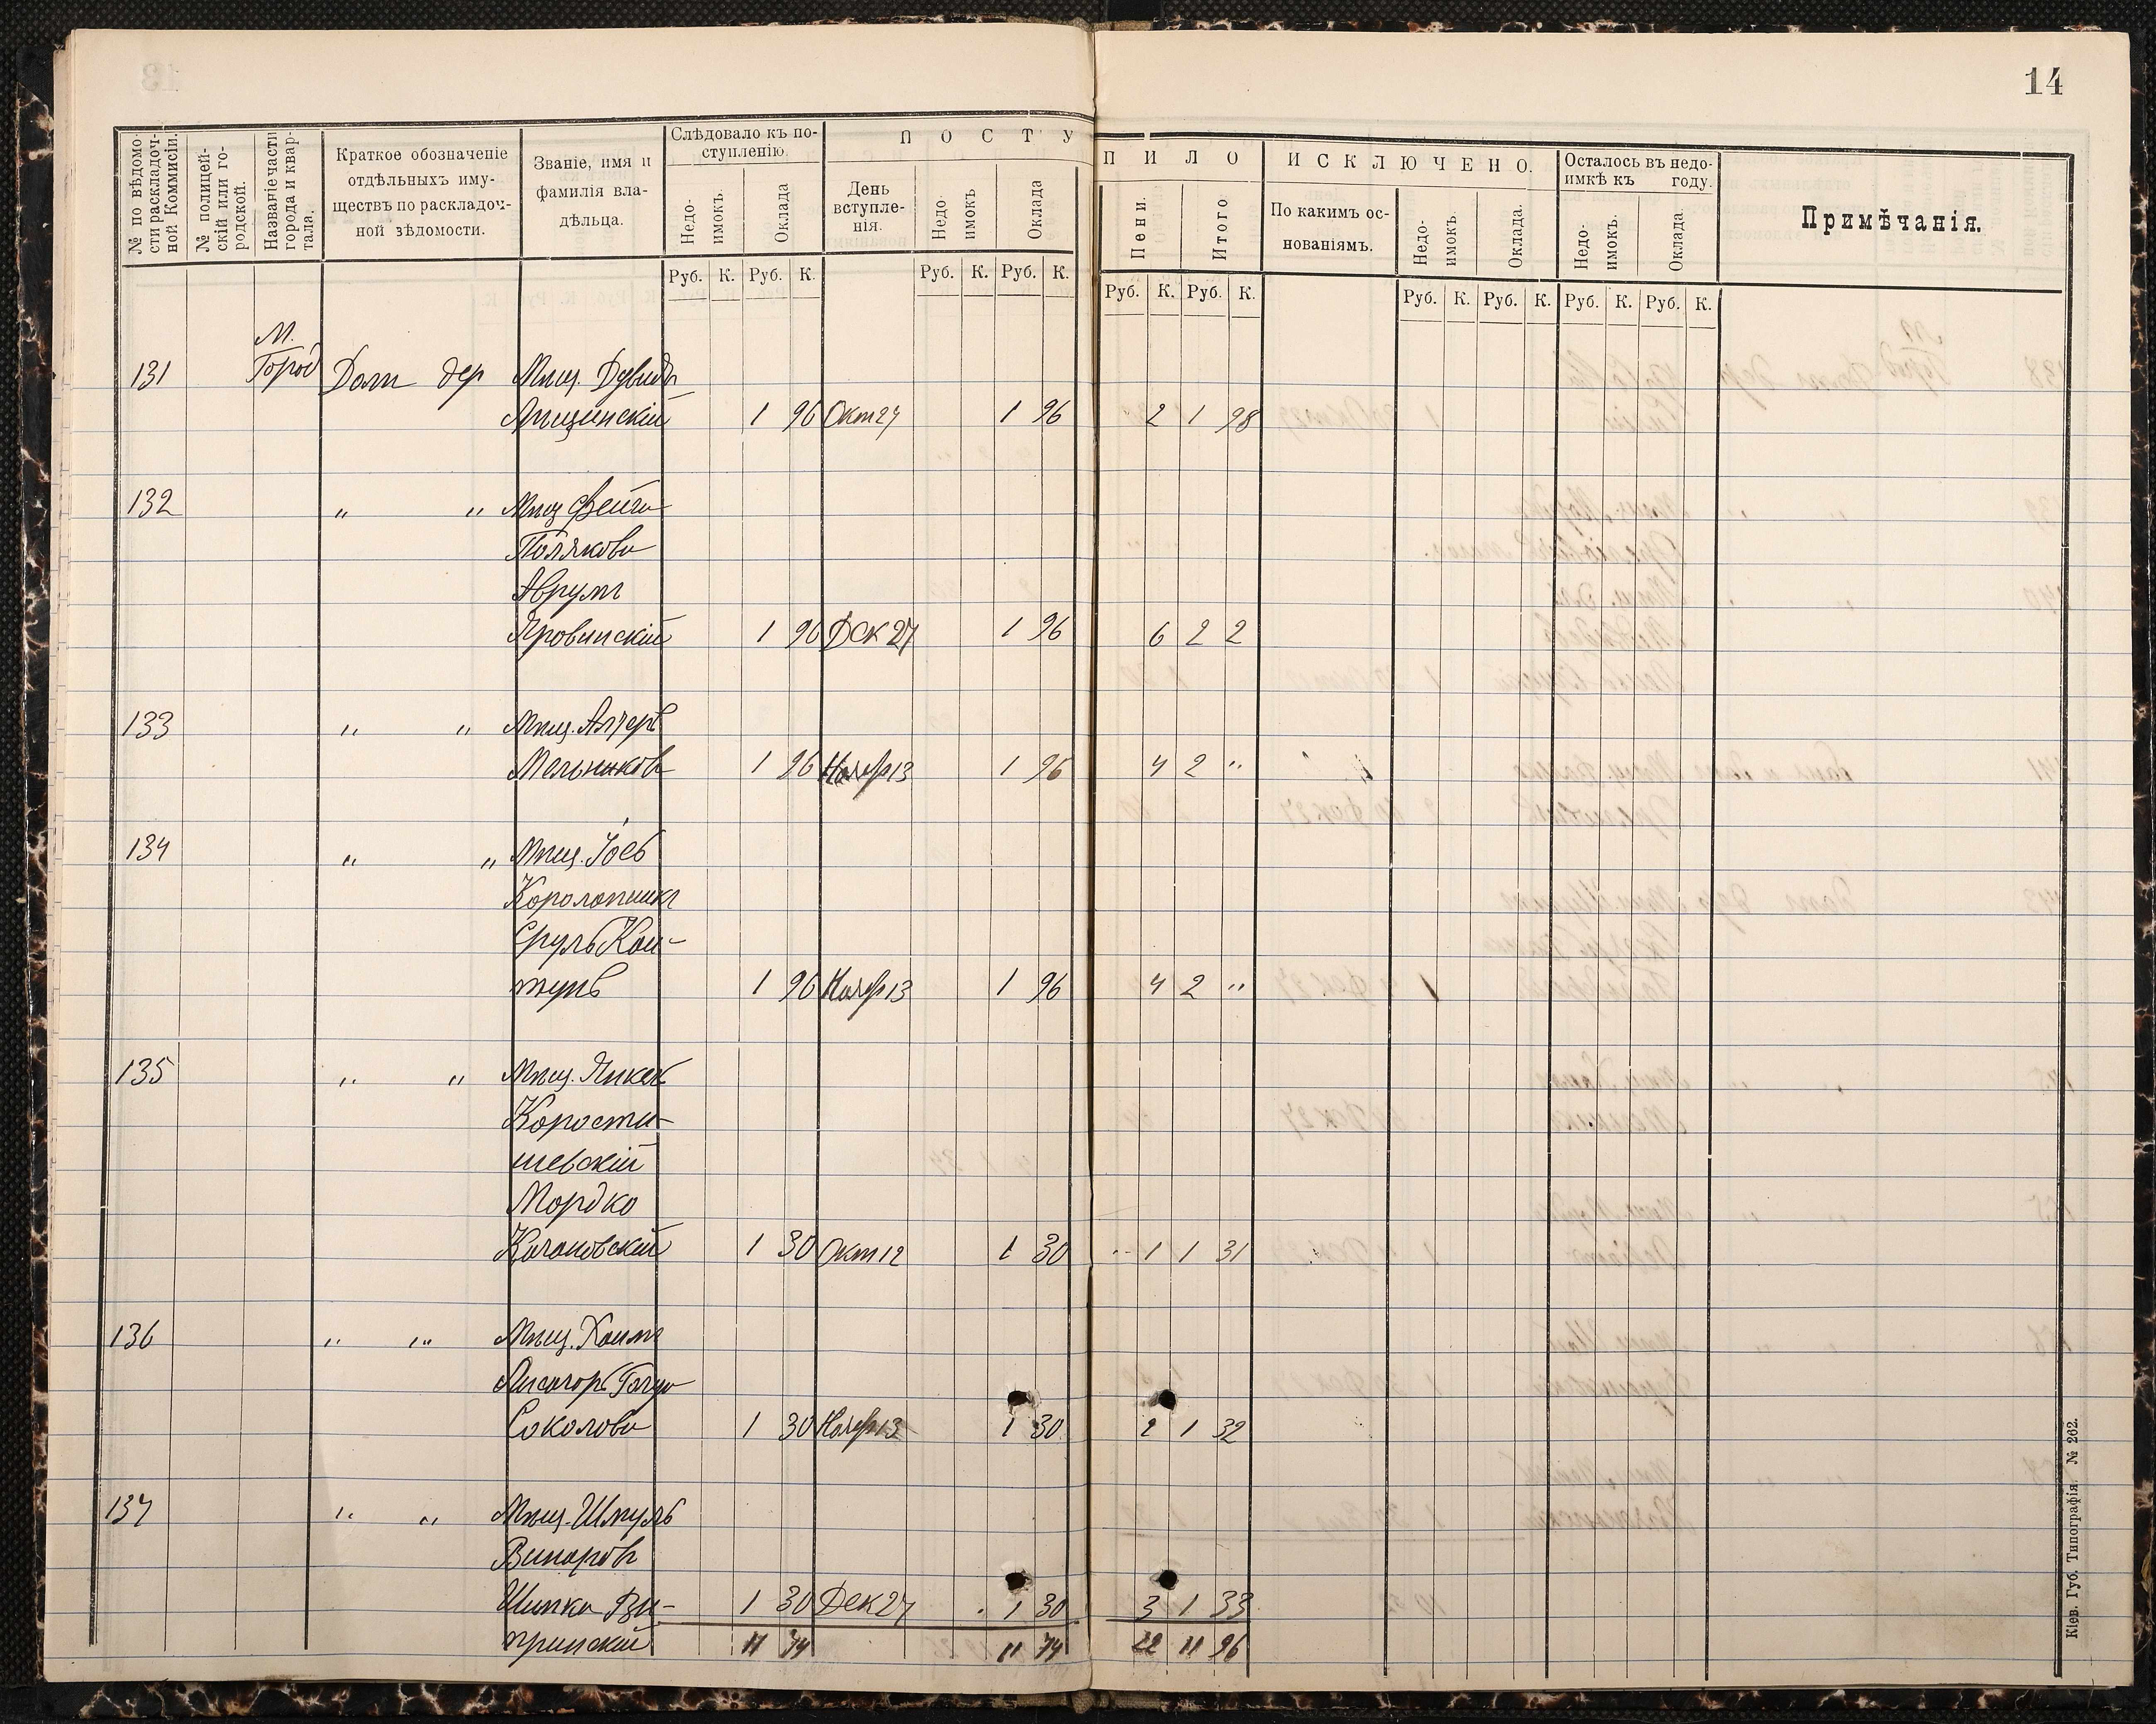 14
№ по вѣдомо-
сти раскладоч-
ной Коммисіи.
№ полицей-
скій или го-
родской.
Названіе части
города и квар-
тала.
Краткое обозначеніе
отдѣльныхъ иму-
ществъ по раскладоч-
ной вѣдомости.
Званіе, имя и
фамилія вла-
дѣльца.
Слѣдовало къ по-
ступленію.
Недо-
имокъ.
Оклада
ПОСТУПИЛО
День
вступле-
нія.
Недо-
имокъ
Оклада
Пени.
Итого
ИСКЛЮЧЕНО.
По какимъ ос-
нованіямъ.
Недо-
имокъ.
Оклада.
Осталось въ недо-
имкѣ къ году.
Недо-
имокъ.
Оклада.
Примѣчанія.
Руб. К. Руб. К. Руб. К. Руб. К. Руб. К. Руб. К. Руб. К. Руб. К. Руб. К. Руб. К.
М.
131 Город Домъ дер Мѣщ. Дувидъ
1 96 Окт 27 1 96 2 1 98
132 " " Мѣщ Фейга
Полякова
Аврумъ
Яровинскій 1 96 Дек 27 1 96 6 2 2
133 " " Мѣщ. Алтеръ
Мельниковъ 1 96 Ноябр 13 1 96 4 2 "
134 " " Мѣщ. Іосъ
Сруль Кол-
тунъ 1 96 Ноябр 13 1 96 4 2 "
135 " " Мѣщ. Янкель
Корости-
шевскій
Мордко
Качановскій 1 30 Окт 12 1 30 " 1 1 31
136 " " Мѣщ. Хаимъ
Соколова 1 30 Ноябр 13 1 30 2 1 32
137 " " Мѣщ. Шмуль
Винаровъ
1 30 Дек 27 1 30 3 1 33
11 74 11 74 22 11 96
Кіев. Губ. Типографія. № 262.